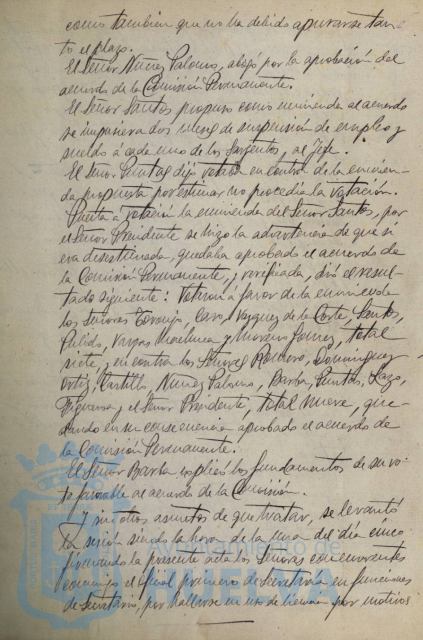 como tambien que no ha debido apurarse tan-
to el plazo.
El Señor Nuñez Palomo, abogó por la aprobación del
acuerdo de la Comisión Permanente.
El Señor Santos propuso como enmienda al acuerdo
se impusiera dos meses de suspensión de empleo y
sueldo á cada uno de los Sargentos, al Jefe.
El Señor Puntas dijo votaba en contra de la enmien-
da propuesta por estimar no procedía la votación.
Puesta á votación la enmienda del Señor Santos, por
el Señor Presidente se hizo la advertencia de que si
era desestimada, quedaba aprobado el acuerdo de
la Comisión Permanente, y verificada, dió el resul-
tado siguiente: Votaron á favor de la enmienda
los Señores Toronjo, Caro, Vazquez de la Corte, Santos,
Pulido, Vargas Machuca y Moreno Gomez, total
siete, en contra los Señores Romero, Dominguez
Ortiz, Castillo, Nuñez Palomo, Barba, Puntas, Lazo,
Figueroa y el Señor Presidente, total nueve, que-
dando en su consecuencia aprobado el acuerdo de
la Comisión Permanente.
El Señor Barba explicó los fundamentos de su vo-
to favorable al acuerdo de la Comisión.
Y sin otros asuntos de que tratar, se levantó
la sesión siendo la hora de la una del día cinco
firmando la presente acta los Señores concurrentes
conmigo el Oficial primero de Secretaría en funciones
de Secretario, por hallarse en uso de licencia por motivos
Ayuntamiento de
HUELVA